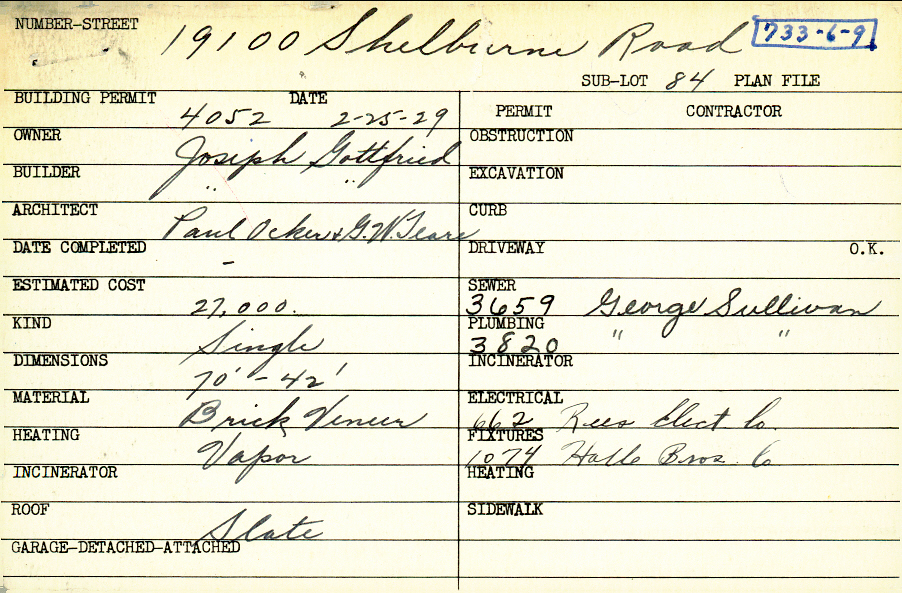 NUMBER-STREET 19100 Shelburne Road 733-6-9
SUB-LOT 84 PLAN FILE
BUILDING PERMIT 4052 DATE 2-25-29
OWNER Joseph Gottfried
BUILDER " "
ARCHITECT Paul Ocker & G.W. Teare
DATE COMPLETED -
ESTIMATED COST 27,000.
KIND Single
DIMENSIONS 70' - 42'
MATERIAL Brick Veneer
HEATING Vapor
INCINERATOR
ROOF Slate
GARAGE-DETACHED-ATTACHED
PERMIT CONTRACTOR
OBSTRUCTION
EXCAVATION
CURB
DRIVEWAY O.K.
SEWER
3659 George Sullivan
PLUMBING
3820 " "
INCINERATOR
ELECTRICAL
662 Rees Elect Co.
FIXTURES
1074 Halle Bros. Co
HEATING
SIDEWALK